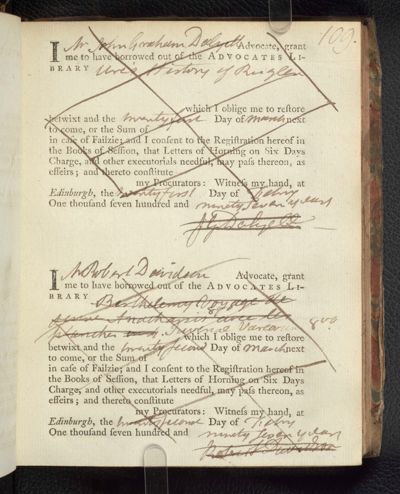 109.
I Mr John Graham Dalyell Advocate, grant
me to have borrowed out of the ADVOCATES LI-
BRARY Ure's History of Ruglen
which I oblige me to restore
betwixt and the twenty first Day of March next
to come, or the Sum of
in case of Failzie; and I consent to the Registration hereof in
the Books of Session, that Letters of Horning on Six Days
Charge, and other executorials needful, may pass thereon, as
effeirs; and thereto constitute
my Procurators: Witness my hand, at
Edinburgh, the twenty first Day of Febry
One thousand seven hundred and ninety seven years
J G Dalyell
I Mr Robert Davidson Advocate, grant
me to have borrowed out of the ADVOCATES LI-
BRARY Barthelemy Voyage de
jeune Anacharsis avec les
Planches Juvenal Variorum 8vo
which I oblige me to restore
betwixt and the twenty second Day of March next
to come, or the Sum of
in case of Failzie; and I consent to the Registration hereof in
the Books of Session, that Letters of Horning on Six Days
Charge, and other executorials needful, may pass thereon, as
effeirs; and thereto constitute
my Procurators: Witness my hand, at
Edinburgh, the twenty second Day of Febry
One thousand seven hundred and ninety seven years
Robert Davidson